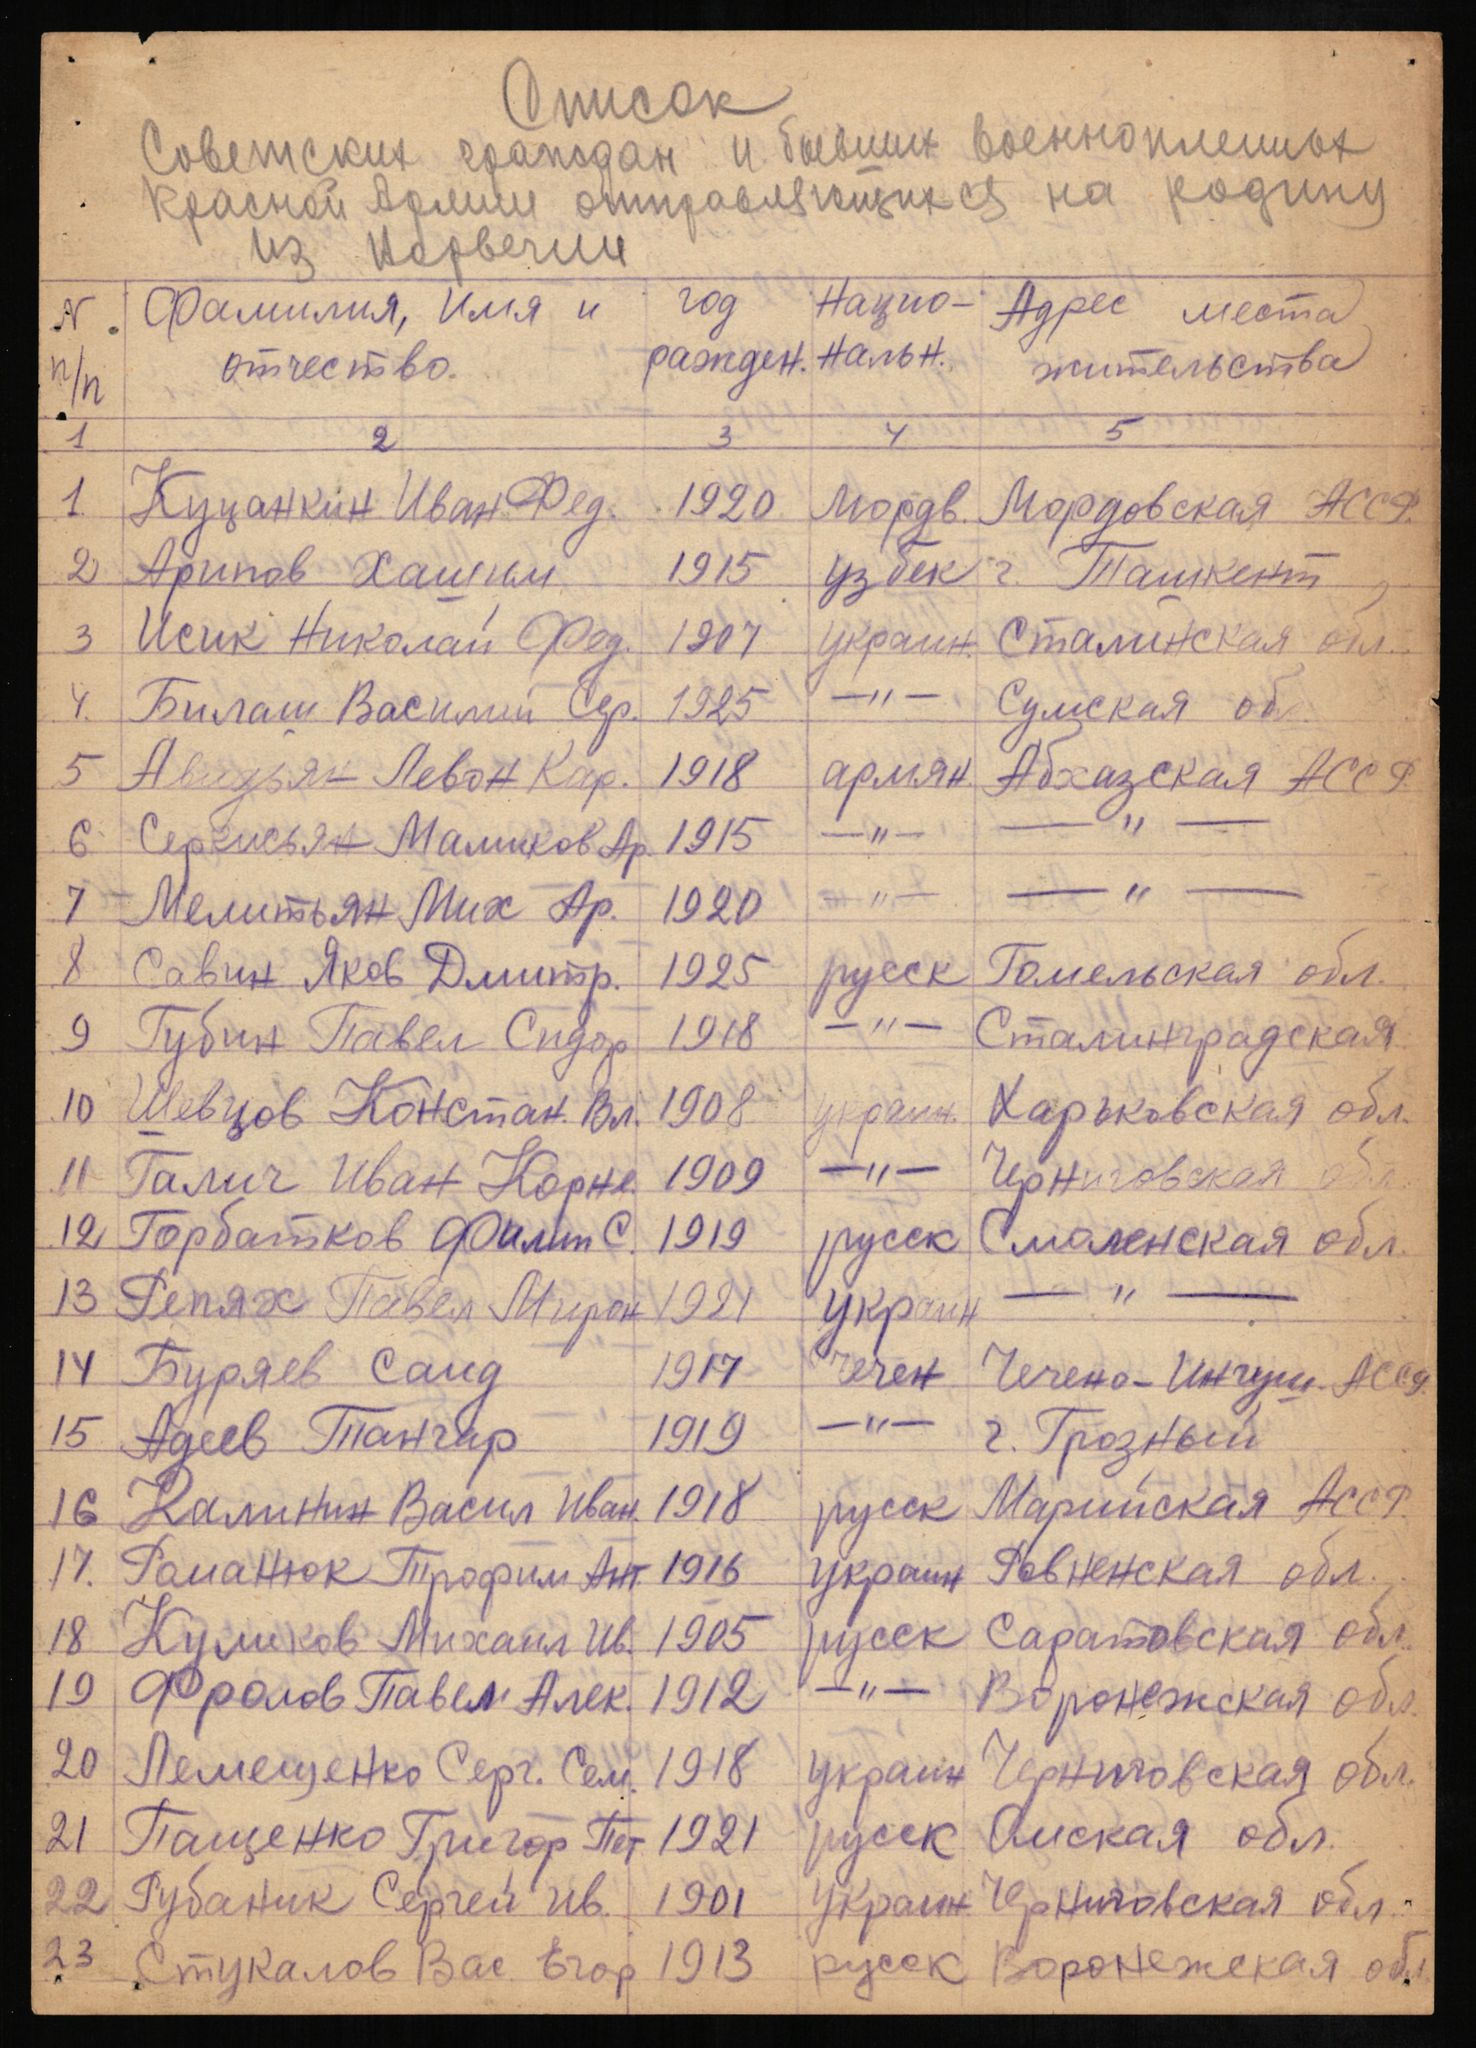 Список
Советских граждан и бывших военнопленых
Красной Армии отправляющихся на родину
из Норвегии
N п/п Фамилия, Имя и отчество. год ражден. Нацио-нальн. Адрес места жительства
1 2 3 4 5
1 Куцанкин Иван Фед. 1920 мордв. Мордовская АССР.
2 Арипов Хашим 1915 узбек г. Ташкент
3 Исик Николай Фед. 1907 украин. Сталинская обл.
4. Билаш Василий Сер. 1925 —"— Сумская обл
5 Авидьян Левон Кар. 1918 армян. Абхазская АССР
6 Серкисьян Маликов Ар. 1915 —"— —"—
7 Мелитьян Мих Ар. 1920 —"— —"—
8 Савин Яков Дмитр. 1925 русск Гомельская обл.
9 Губин Павел Сидор 1918 —"— Сталинградская
10 Шевцов Констан. Вл. 1908 украин. Харьковская обл.
11 Галич Иван Корне. 1909 —"— Черниговская обл.
12 Горбатков Филип С. 1919 русск Смоленская обл.
13 Репях Павел Мирон 1921 украин —"—
14 Буряев Саид 1917 Чечен Чечено-Ингуш. АССР.
15 Адеев Тангир 1919 —"— г. Грозный
16 Калинин Васил Иван. 1918 русск Марийская АССР
17. Романюк Трофим Ант. 1916 украин Ровненская обл.
18 Куликов Михаил Ив. 1905 русск Саратовская обл.
19 Фролов Павел Алек. 1912 —"— Воронежская обл.
20 Лемещенко Серг. Сем. 1918 украин Черниговская обл.
21 Пащенко Григор Пет 1921 русск Омская обл.
22 Рубаник Сергей Ив. 1901 украин. Черниговская обл.
23 Стукалов Вас Егор 1913 русск Воронежская обл.